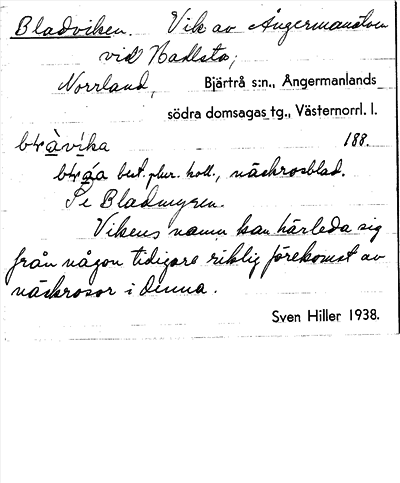 Bladviken. Vik av Ångermanälven
vid Hadlsta,
Norrland, Bjärtrå s:n., Ångermanlands
södra domsagas tg., Västernorrl. l.
188.
best. plur. koll., näckrosblad.
Se Bladmyren.
Vikens namn kan härleda sig
från någon tidigare riklig förekomst av
näckrosor i denna.
Sven Hiller 1938.